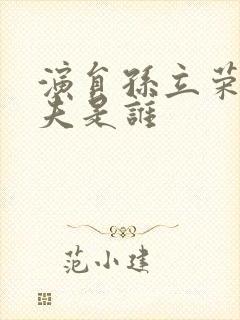 演員孫立荣
夫是誰
范小建